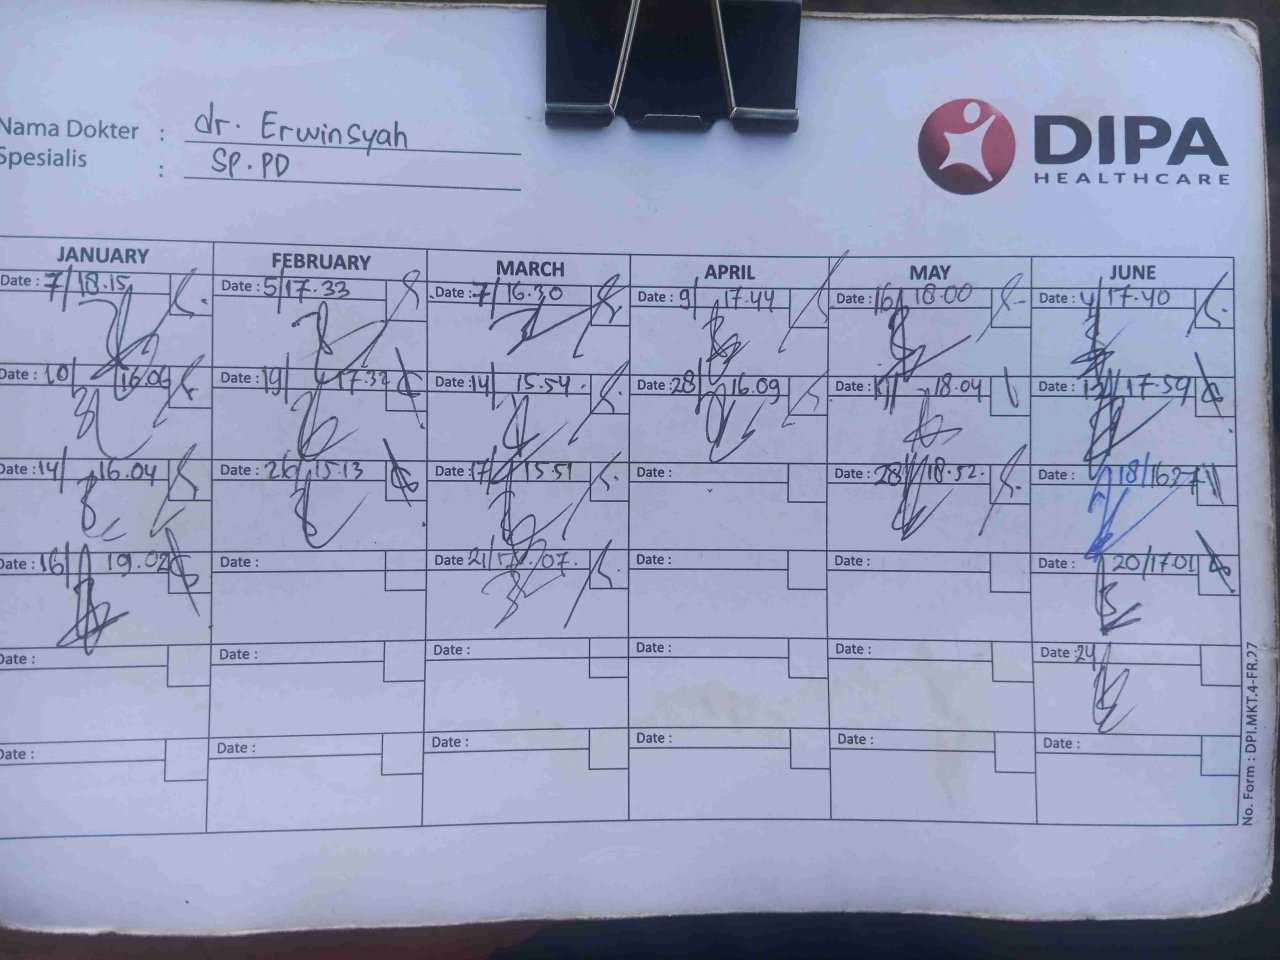 Nama Dokter : dr. Erwinsyah
Spesialis : SP.PD
DIPA
HEALTHCARE
JANUARY FEBRUARY MARCH APRIL MAY JUNE
Date : 7/18.15 Date : 5/17.33 Date : 7/16.30 Date : 9/ 17.44 Date : 16/ 18.00 Date : 4/17.40
Date : 10/ 16.06 Date : 19/ 17.32 Date : 14/ 15.54 Date : 28/ 16.09 Date : 18.04 Date : 17.59
Date : 14/ 16.04 Date : 26/15.13 Date : 17/ 15.51 Date : Date : 28/18.52 Date : 18/16.27
Date : 16/ 19.02 Date : Date 21/ 07 Date : Date : Date : 20/17.01
Date : Date : Date : Date : Date : Date : 24/
Date : Date : Date : Date : Date : Date :
No. Form : DPI.MKT.4-FR.27